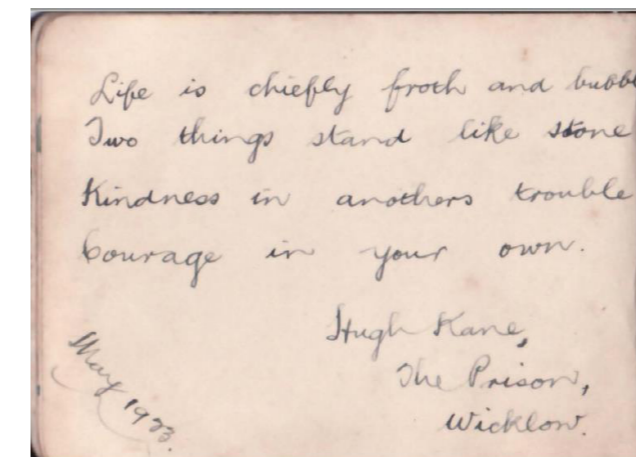 Life is chiefly froth and bubbl
Two things stand like stone
Kindness in anothers trouble
Courage in your own.
Hugh Kane,
The Prison,
Wicklow.
May 1923.